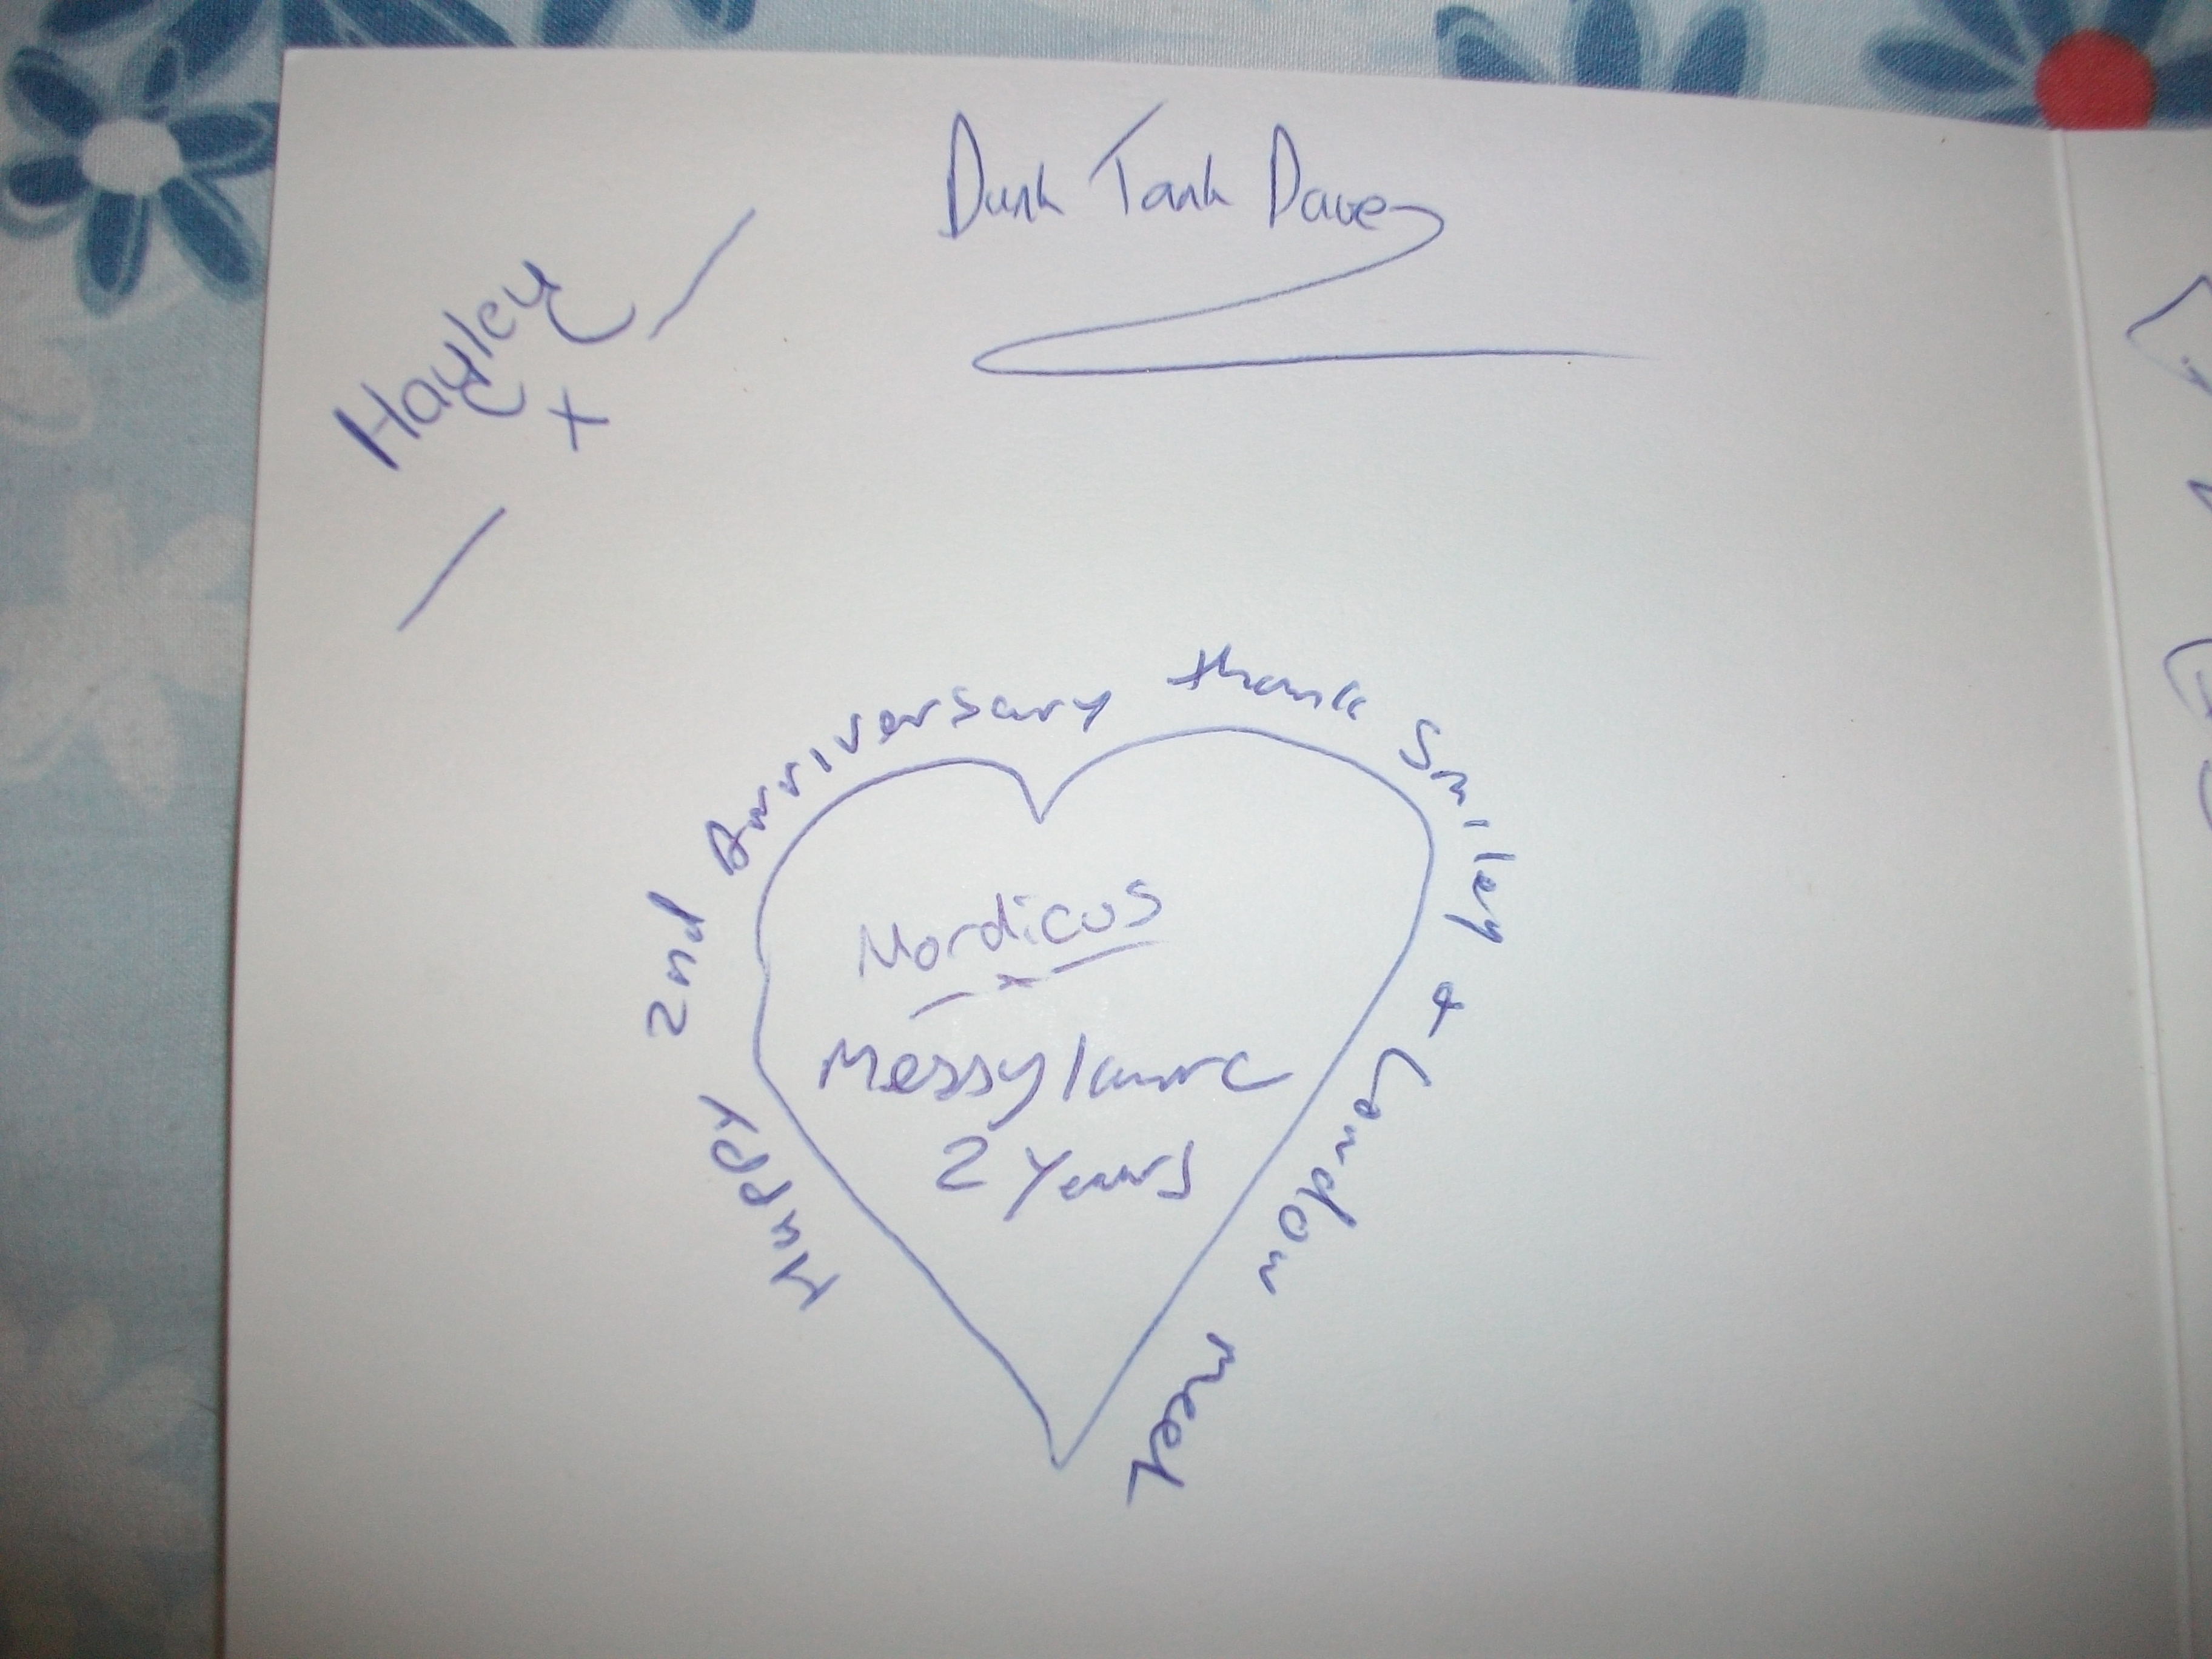 Dunk Tank Dave
Hayley
x
Happy 2nd Anniversary thank Smiley & London meet
Mordicus
x
Messylaura
2 Years